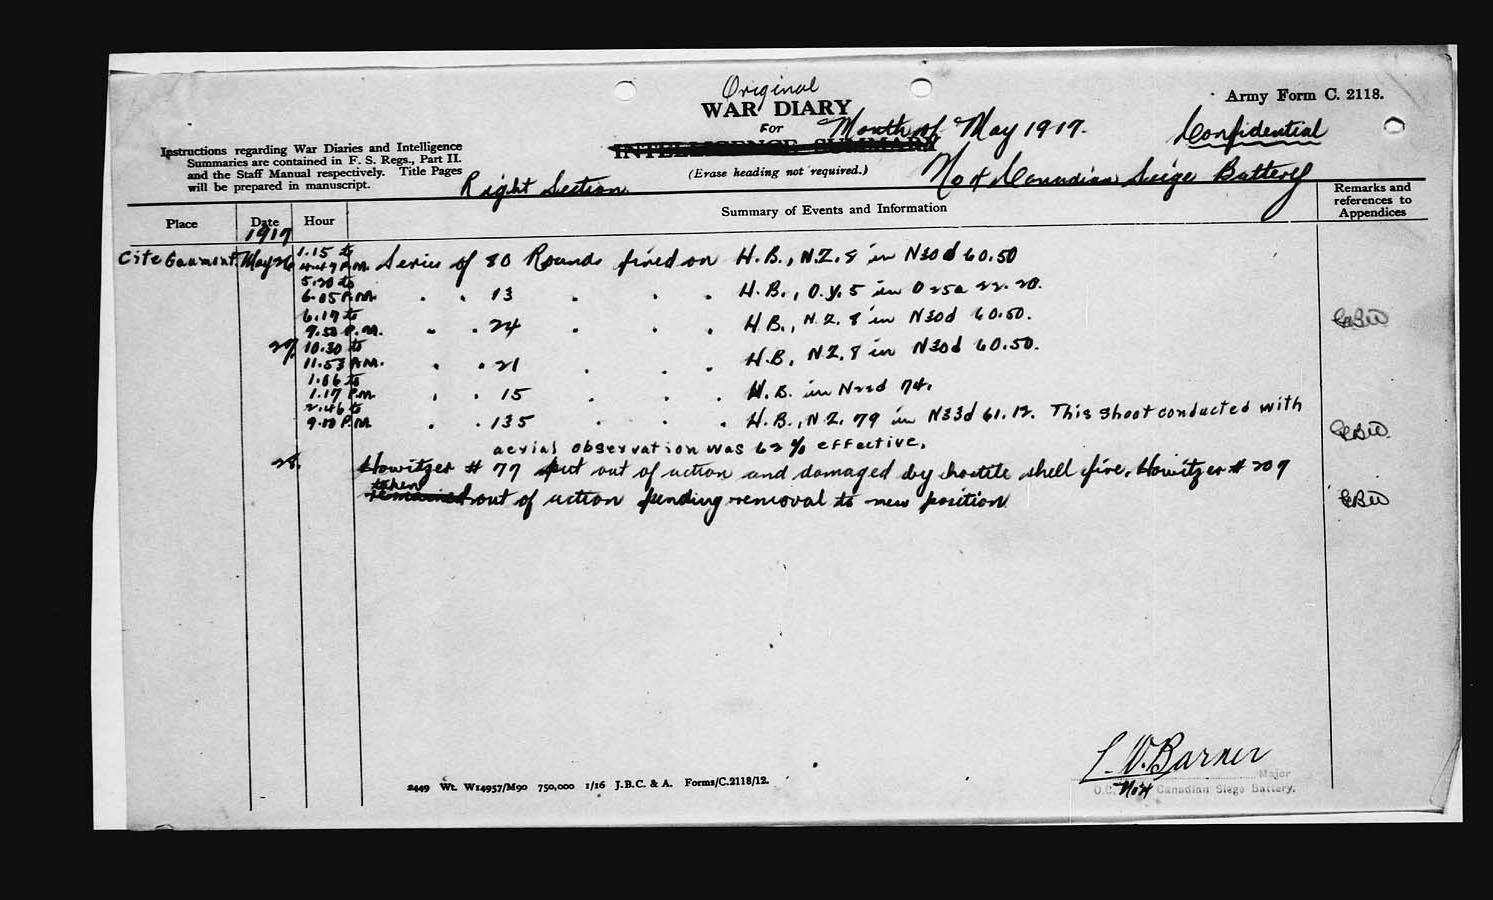 Original
WAR DIARY
Army Form C. 2118.
For Month of May 1917.
Confidential
INTELLIGENCE SUMMARY
Instructions regarding War Diaries and Intelligence
Summaries are contained in F. S. Regs., Part II.
and the Staff Manual respectively. Title Pages
will be prepared in manuscript.
(Erase heading not required.)
Right Section
No Canadian Seige Battery
Place Date Hour Summary of Events and Information Remarks and references to Appendices
1917
Cite Gaumont May 26 1.15 to
4.47 P.M. Series of 80 Rounds fired on H.B., N.Z. 8 in N30d 60.50
5.20 to
6.05 P.M. . . 13 . . . H.B., O.Y. 5 in O25a 22.20.
6.17 to
7.50 P.M. . . 24 . . . H.B., N.Z. 8 in N30d 60.50.
27. 10.30 to
11.53 A.M. . . 21 . . . H.B, N.Z. 8 in N30d 60.50.
1.06 to
1.17 P.M. . . 15 . . . H.B. in 74.
2.46 to
P.M. . . 135 . . . H.B., N.Z. 79 in N33d 61.12. This shoot conducted with
aerial observation was 62% effective.
28. Howitzer # 77 put out of action and damaged by hostile shell fire. Howitzer # 209
taken
remained out of action pending removal to new position
L. W. Barner
Major
O.C. Canadian Siege Battery.
2449 Wt. W14957/M90 750,000 1/16 J.B.C. & A. Forms/C.2118/12.